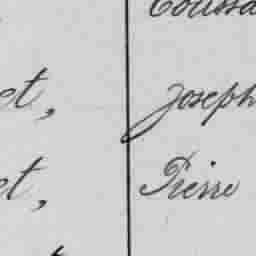 et, Joseph
et, Pierre